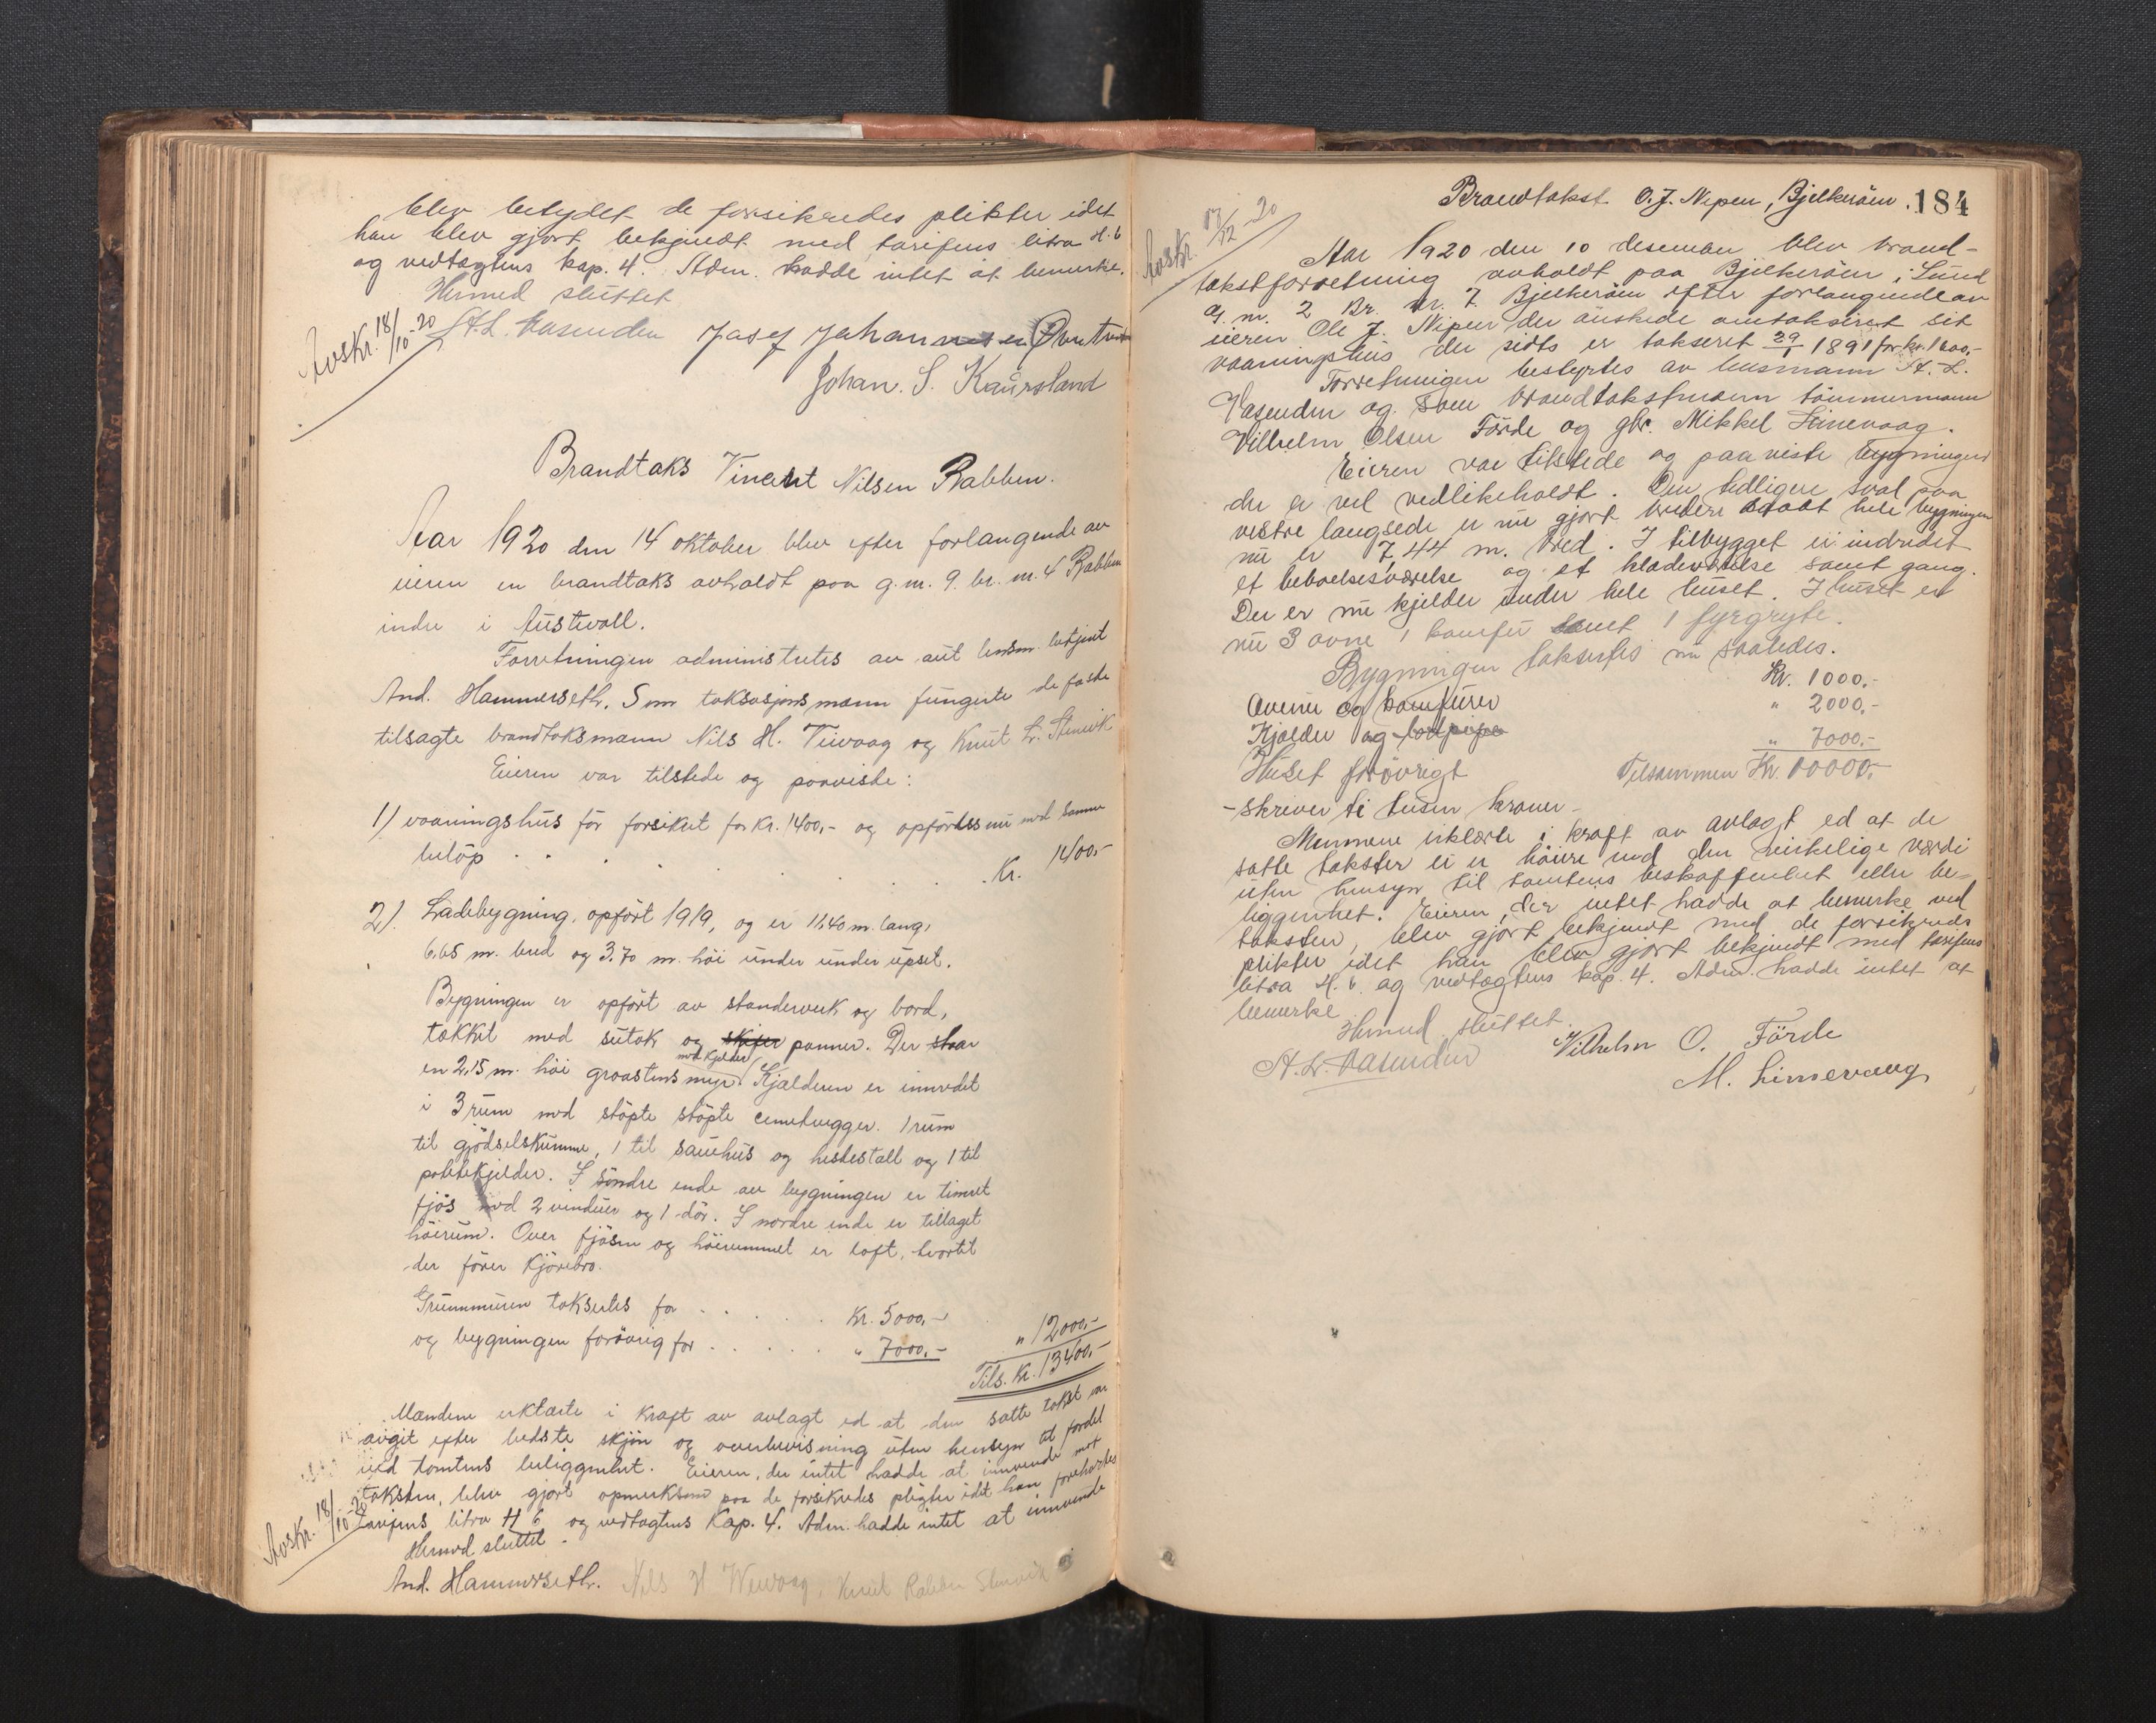 blev betydet de forsikredes plikter idet
han blev gjort bekjendt med tarifens litra H. 6
og vedtagtens kap. 4. Adm. hadde intet at bemerke.
Hermed sluttet
Avskr. 18/10-20
A. L. Vasenden Josef Johannesen
Johan. S. Kaursland
Brandtaks Vincent Nilsen Rabben.
Aar 1920 den 14 oktober blev efter forlangende av
eieren en brandtaks avholdt paa g. nr. 9. br. nr. 4 Rabben
indre i Austevoll.
Forretningen administrertes av aut lensm. betjent
And. Hammerseth. Som taksasjonsmænn fungerte de faste
tilsagte brandtaksmænn Nils H. og Knut L. Stenevik
Eieren var tilstede og paaviste:
1) vaaningshus før forsikret for Kr. 1400,- og opføres nu med samme
beløp . . . . . . . Kr. 1400,-
2). Ladebygning, opført 1919, og er 11,40 m. lang,
6,65 m. bred og 3.70 m. høi under under upset.
Bygningen er opført av standerverk og bord,
tækket med sutak og skifer panner. Der staar
med kjelder
en 2,15 m. høi graastensmur. Kjælderen er innredet
i 3 rum med støpte støpte cementvegger. 1 rum
til gjødselskumme, 1 til sauehus og hestestall og 1 til
potetekjelder. I søndre ende av bygningen er timret
fjøs med 2 vinduer og 1 dør. I nordre ende er tillaget
høirum. Over fjøsen og høirummet er loft, hvortil
der fører kjørebro.
Grunnmuren takseres for . . . . . Kr. 5000,-
og bygningen forøvrig for . . . . . " 7000.- " 12000,-
Tils. Kr. 13400,-
Mændene erklærte i kraft av avlagt ed at den satte takst var
avgit efter bedste skjøn og overbevisning uten hensyn til fordel
ved tomtens beliggenhet. Eieren, der intet hadde at innvende mot
taksten, blev gjort opmerksom paa de forsikredes pligter idet han foreholdtes
tarifens litra H 6 og vedtagtens Kap. 4. Adm. hadde intet at innvende
Avskr. 18/10-20
Hermed sluttet -
And. Hammerseth. Nils H Knut Rabben Stenevik
Brandtakst O. J. Nipen, Bjelkerøen. 184
Avskr. 17/12-20
Aar 1920 den 10 desember blev brand-
takstforretning avholdt paa Bjelkerøen i Sund
g. nr. 2 Br. nr. 7. Bjelkerøen efter forlangende av
eieren Ole J. Nipen der ønskede omtakseret sit
vaaningshus der sidts er takseret 29/1 1891 for kr. 1600,-
Forretningen bestyrtes av lensmann A. L.
Vasenden og som brandtakstmænn tømmermann
Vilhelm Olsen Förde og gbr. Mikkel Limevaag.
Eieren var tilstede og paaviste bygningen
der er vel vedlikeholdt. Den tidligere sval paa
vestre langsede er nu gjort bredere saa at hele bygningen
nu er 7,44 m. bred. I tilbygget er indredet
et beboelsesværelse og et klædeværelse samt gang.
Der er nu kjelder under hele huset. I huset er
nu 3 ovne 1 komfur samt 1 fyrgryte.
Bygningen takseres nu saaledes.
Ovene og komfurer Kr. 1000.-
Kjælder og " 2000.-
Huset forøvrigt " 7000.-
Tilsammen Kr. 10000,-
- skriver ti tusen kroner -
Mennene erklærte i kraft av avlagt ed at de
satte takster ei er høiere end den virkelige værdi
uten hensyn til tomtens beskaffenhet eller be-
liggenhet. Eieren, der intet hadde at bemerke ved
taksten, blev gjort bekjendt med de forsikredes
plikter idet han blev gjort bekjendt med tarifens
litra H. 6. og vedtagtens kap. 4. Adm. hadde intet at
bemerke
Hermed sluttet.
A. L. Vasenden Vilhelm O. Förde
M. Limevaag